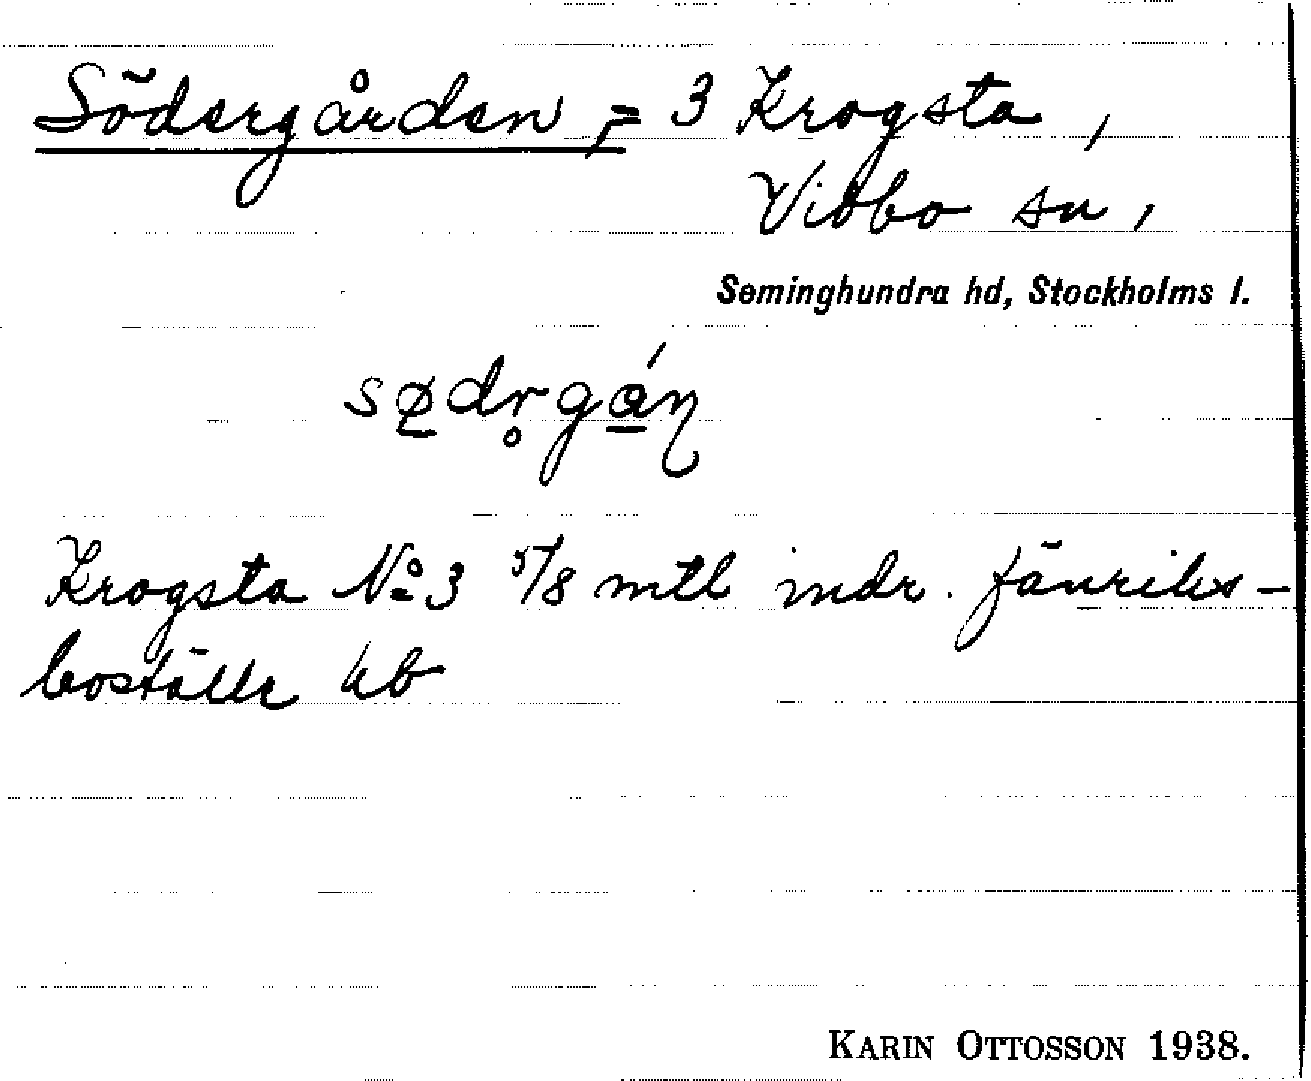 Södergården, = 3 Krogsta,
Vidbo sn,
Seminghundra hd, Stockholms l.
sø̱dr̥gá̱ɳ
Krogsta No 3 5/8 mtl indr. fänriks-
boställe kb
KARIN OTTOSSON 1938.